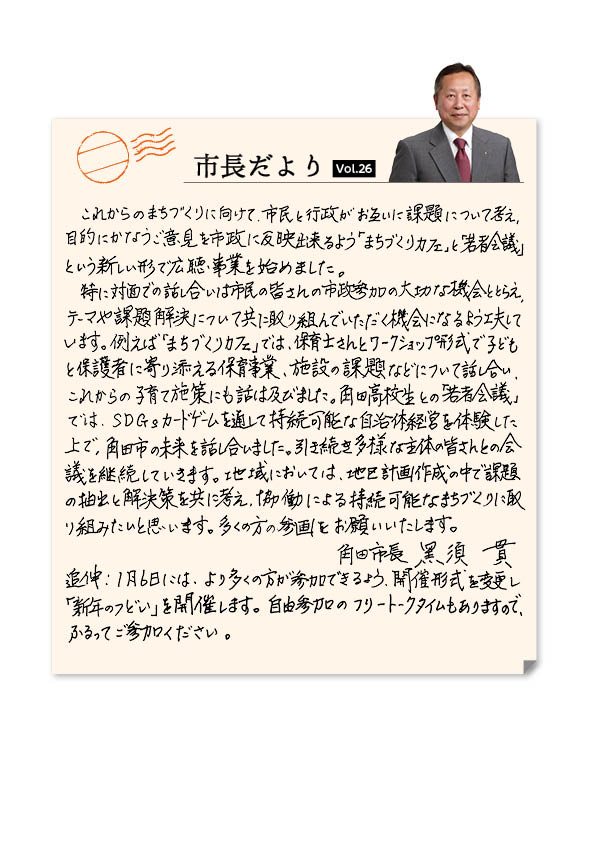 市長だより Vol.26
これからのまちづくりに向けて、市民と行政がお互いに課題について考え、
目的にかなうご意見を市政に反映出来るよう「まちづくりカフェ」と「若者会議」
という新しい形で広聴事業を始めました。
特に対面での話し合いは市民の皆さんの市政参加の大切な機会ととらえ、
テーマや課題解決について共に取り組んでいただく機会になるよう工夫して
います。例えば「まちづくりカフェ」では、保育士さんとワークショップ形式で子ども
と保護者に寄り添える保育事業、施設の課題などについて話し合い、
これからの子育て施策にも話は及びました。角田高校生との「若者会議」
では、SDGsカードゲームを通して持続可能な自治体経営を体験した
上で、角田市の未来を話し合いました。引き続き多様な主体の皆さんとの会
議を継続していきます。地域においては、地区計画作成の中で課題
の抽出と解決策を共に考え、協働による持続可能なまちづくりに取
り組みたいと思います。多くの方の参画をお願いいたします。
角田市長 黑須 貫
追伸:1月6日には、より多くの方が参加できるよう、開催形式を変更し
「新年のつどい」を開催します。自由参加のフリートークタイムもありますので、
ふるってご参加ください。